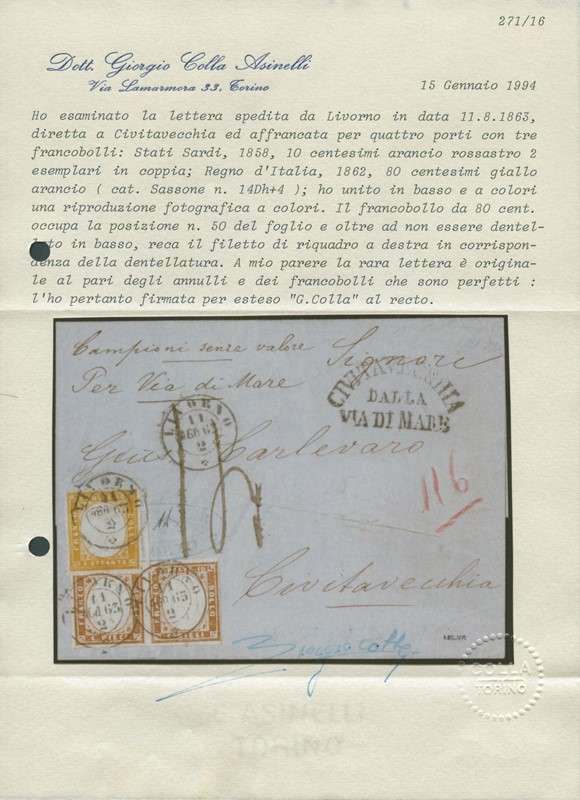 271/16
Dott. Giorgio Colla Asinelli
Via Lamarmora 33. Torino
15 Gennaio 1994
Ho esaminato la lettera spedita da Livorno in data 11.8.1863,
diretta a Civitavecchia ed affrancata per quattro porti con tre
francobolli: Stati Sardi, 1858, 10 centesimi arancio rossastro 2
esemplari in coppia; Regno d'Italia, 1862, 80 centesimi giallo
arancio ( cat. Sassone n. 14Dh+4 ); ho unito in basso e a colori
una riproduzione fotografica a colori. Il francobollo da 80 cent.
occupa la posizione n. 50 del foglio e oltre ad non essere dentel-
lato in basso, reca il filetto di riquadro a destra in corrispon-
denza della dentellatura. A mio parere la rara lettera è origina-
le al pari degli annulli e dei francobolli che sono perfetti :
l'ho pertanto firmata per esteso "G.Colla" al recto.
Campioni senza valore Signore
Per Via di Mare
CIVITAVECCHIA
DALLA
VIA DI MARE
LIVORNO
11
AGO 63
2
Carlevaro
116
LIVORNO
11
AGO 63
2
FRANCO
C. OTTANTA
LIVORNO
11
AGO 63
2
FRANCO BOLLO
C. DIECI
11
AGO 63
2
FRANCO BOLLO
C. DIECI
Civitavecchia
Giorgio Colla
COLLA
TORINO
E ASINELLI
TORINO